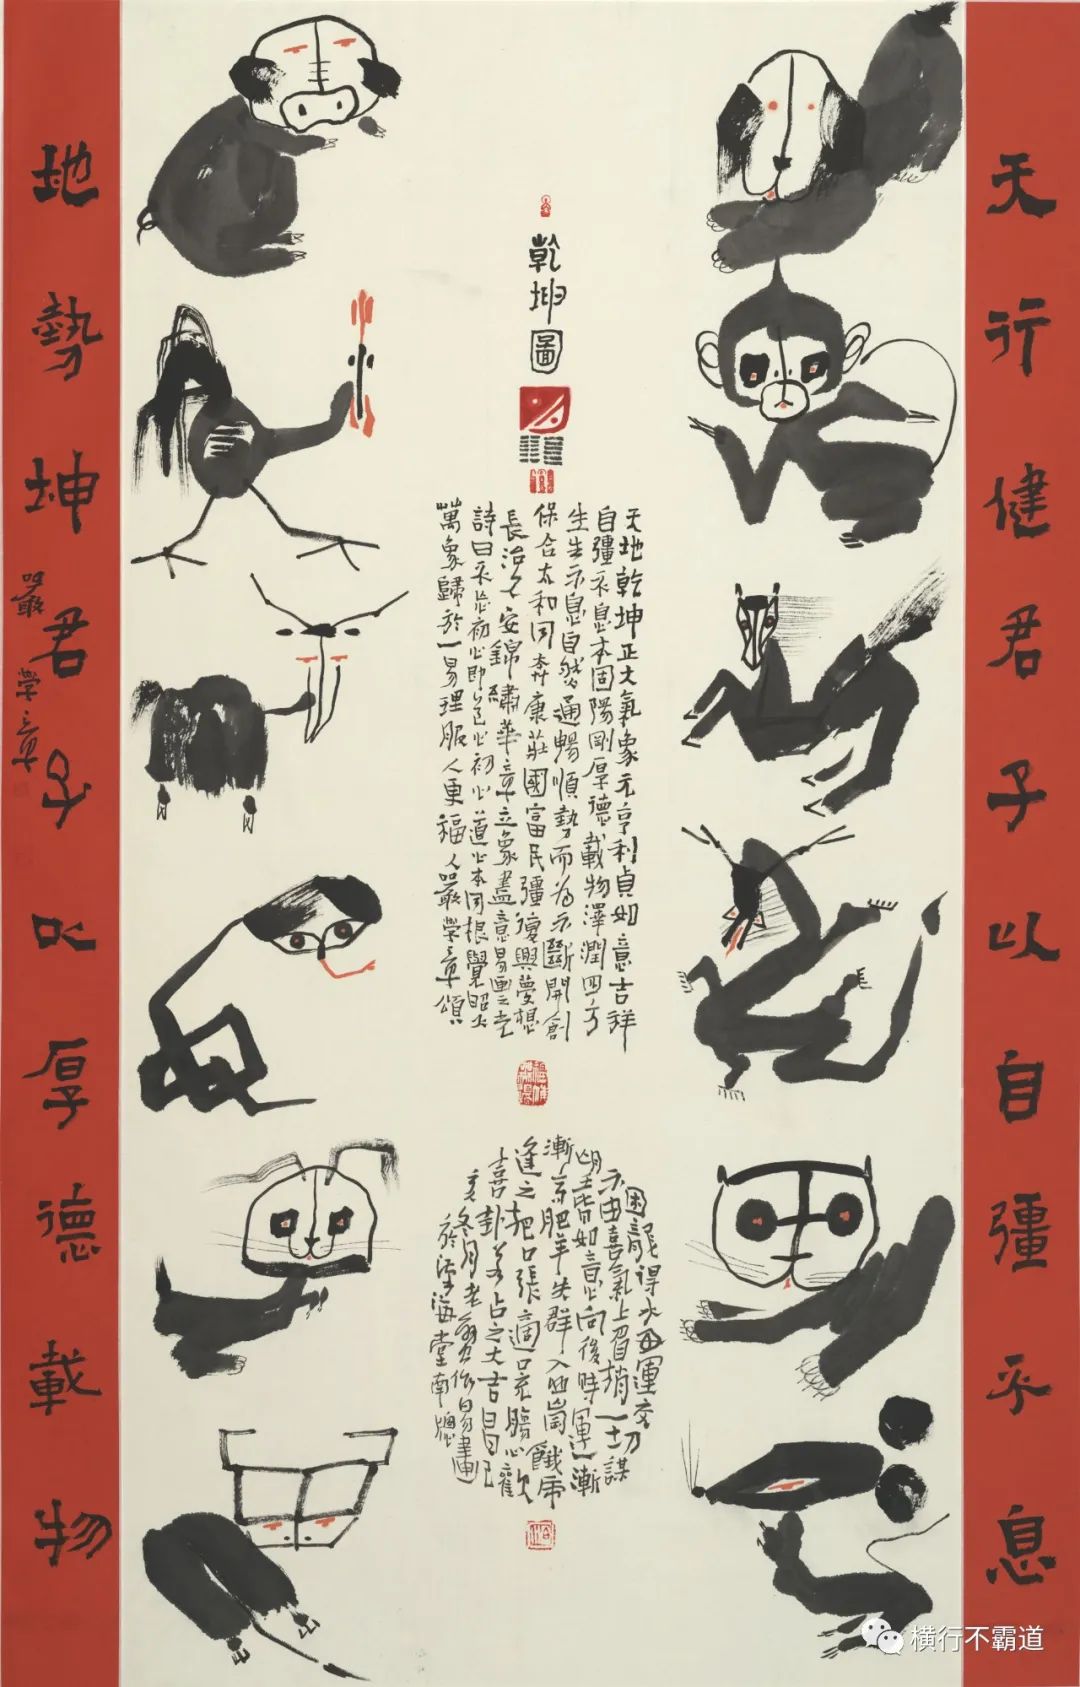 天行健君子以自彊不息
乾坤圖
天地乾坤正大氣象元亨利貞如意吉祥
自彊不息本固陽剛厚德載物澤潤四方
生生不息自然通暢順勢而為不斷開創
保合太和同奔康莊國富民彊復興夢想
長治久安錦繡華章立象盡意易畫之光
詩曰不忘初心即是心初心道心本同根覺昭大
萬象歸於一易理服人更福人嚴學章頌
困龍得水好運交
不由喜氣上眉梢一切謀
皆如意向後時運漸漸
肥羊失群入山崗餓虎
逢之把口張適口充腸心歡
喜卦若占之大吉昌己
亥冬月老嚴作易畫
於渤海堂南窗
地勢坤君子以厚德載物
嚴學章
横行不霸道